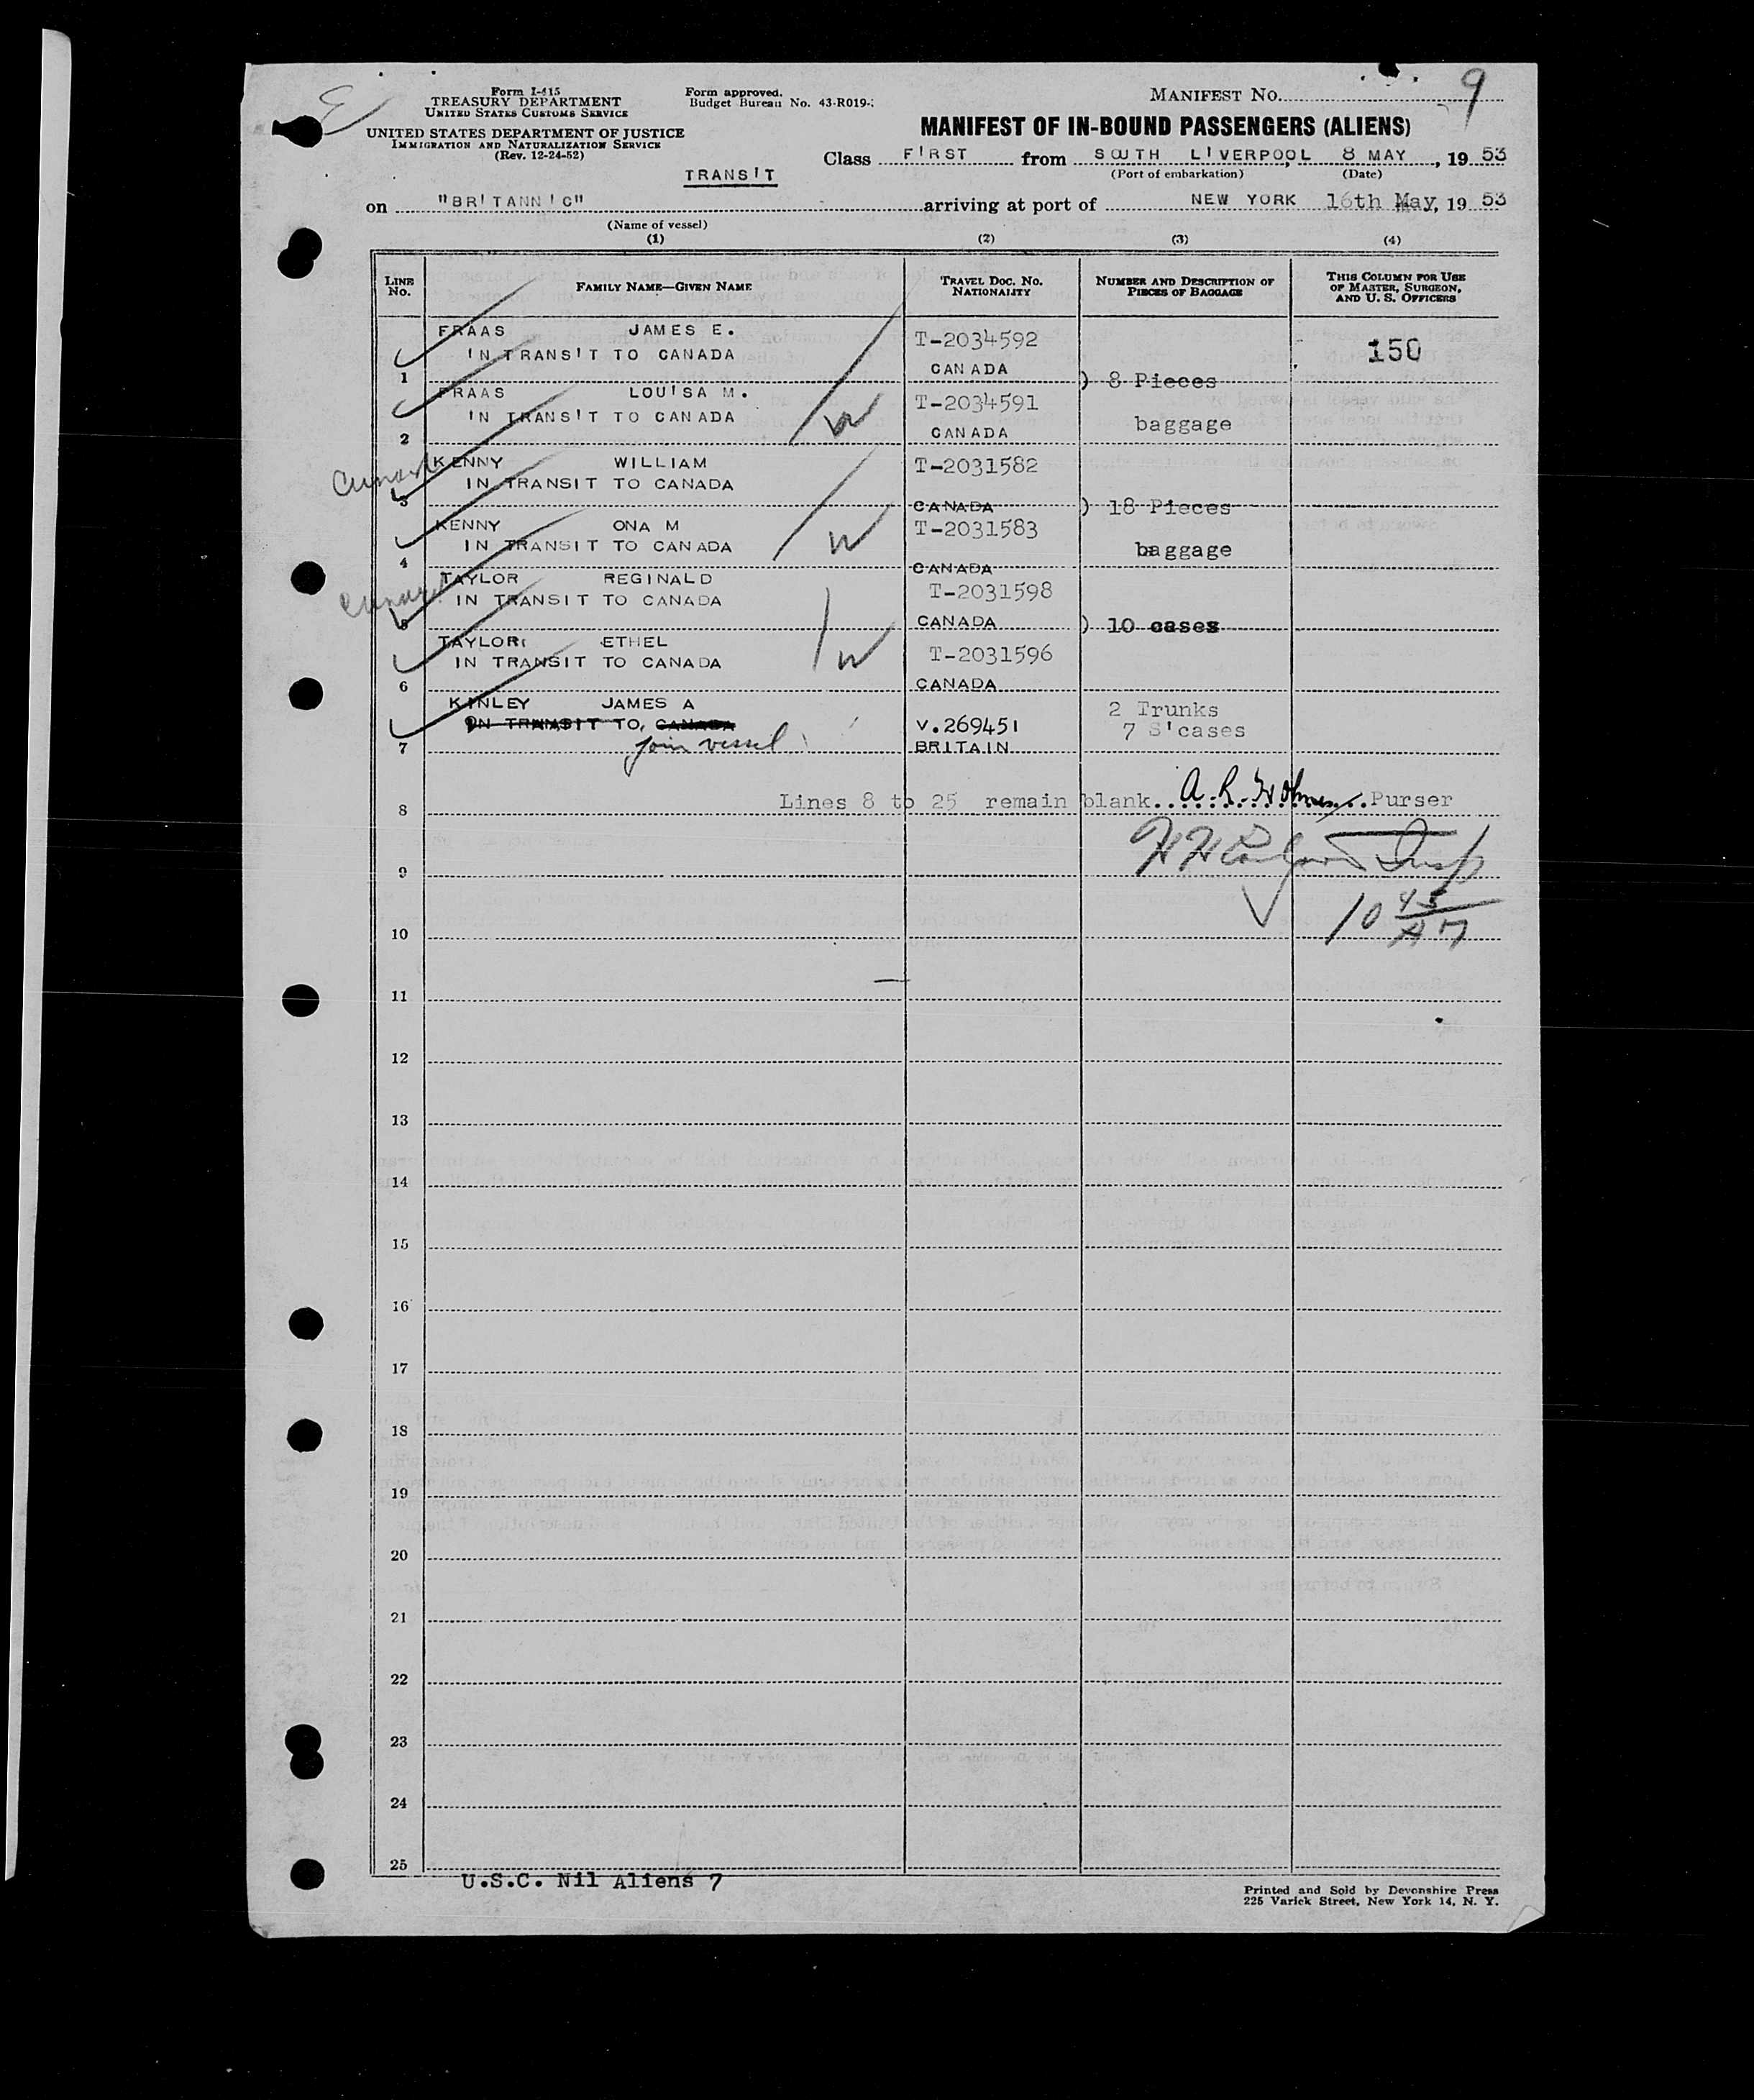 9
Form I-415
TREASURY DEPARTMENT
UNITED STATES CUSTOMS SERVICE
UNITED STATES DEPARTMENT OF JUSTICE
IMMIGRATION AND NATURALIZATION SERVICE
(Rev. 12-24-52)
Form approved.
Budget Bureau No. 43-R019-
MANIFEST No.
MANIFEST OF IN-BOUND PASSENGERS (ALIENS)
Class FIRST from SOUTH LIVERPOOL, 8 MAY, 19 53
(Port of embarkation) (Date)
TRANSIT
on "BRITANNIC" arriving at port of NEW YORK 16th May, 19 53
(Name of vessel)
(1) (2) (3) (4)
LINE No. FAMILY NAME—GIVEN NAME TRAVEL DOC. NO. NATIONALITY NUMBER AND DESCRIPTION OF PIECES OF BAGGAGE THIS COLUMN FOR USE OF MASTER, SURGEON, AND U. S. OFFICERS
FRAAS JAMES E. T-2034592 150
IN TRANSIT TO CANADA
1 CANADA ) 8 Pieces
FRAAS LOUISA M. T-2034591
IN TRANSIT TO CANADA baggage
2 CANADA
Cunard KENNY WILLIAM T-2031582
IN TRANSIT TO CANADA
3 CANADA ) 18 Pieces
KENNY ONA M T-2031583
IN TRANSIT TO CANADA baggage
4 CANADA
Cunard TAYLOR REGINALD T-2031598
IN TRANSIT TO CANADA
5 CANADA ) 10 cases
TAYLOR ETHEL T-2031596
IN TRANSIT TO CANADA
6 CANADA
KINLEY JAMES A 2 Trunks
IN TRANSIT TO, CANADA V.269451 7 S'cases
7 join vessel BRITAIN
Lines 8 to 25 remain blank. A. R. Purser
8
9
10 45 AM
10
11
12
13
14
15
16
17
18
19
20
21
22
23
24
25
U.S.C. Nil Aliens 7
Printed and Sold by Devonshire Press
225 Varick Street, New York 14, N. Y.